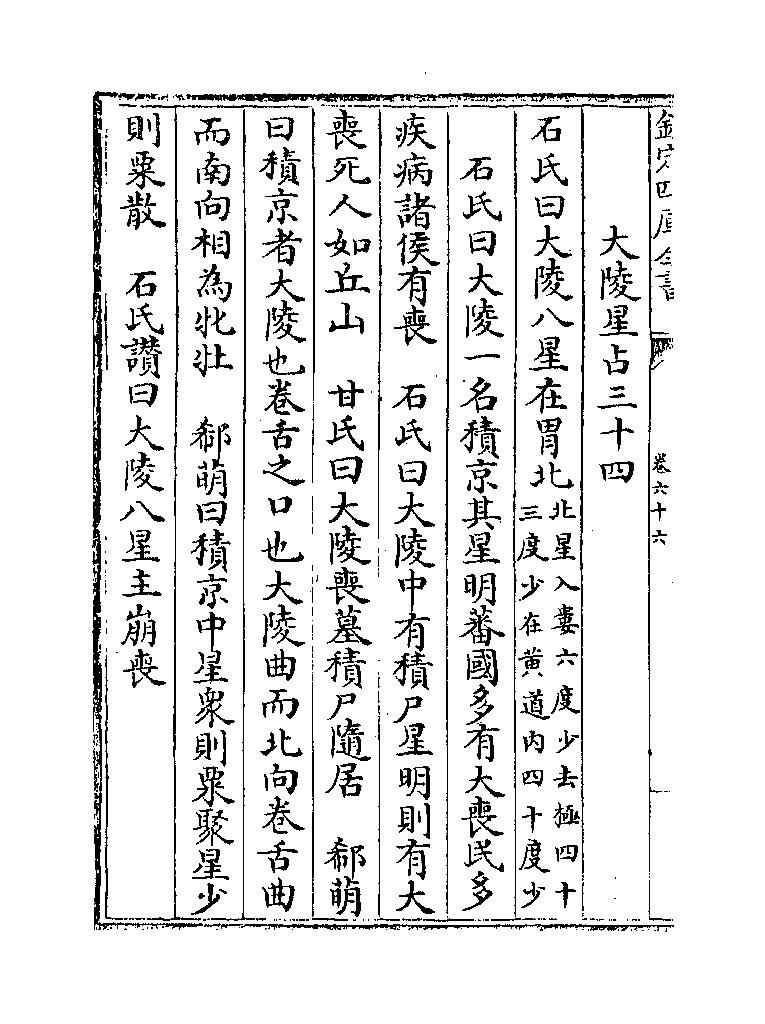 欽定四庫全書
卷六十六
大陵星占三十四
石氏曰大陵八星在胃北北星入婁六度少去極四十三度少在黄道内四十度少
石氏曰大陵一名積京其星明蕃國多有大喪民多
疾病諸侯有喪　石氏曰大陵中有積尸星明則有大
喪死人如丘山　甘氏曰大陵喪墓積尸隨居　郗萌
曰積京者大陵也卷舌之口也大陵曲而北向卷舌曲
而南向相為牝牡　郗萌曰積京中星衆則粟聚星少
則粟散　石氏讚曰大陵八星主崩喪